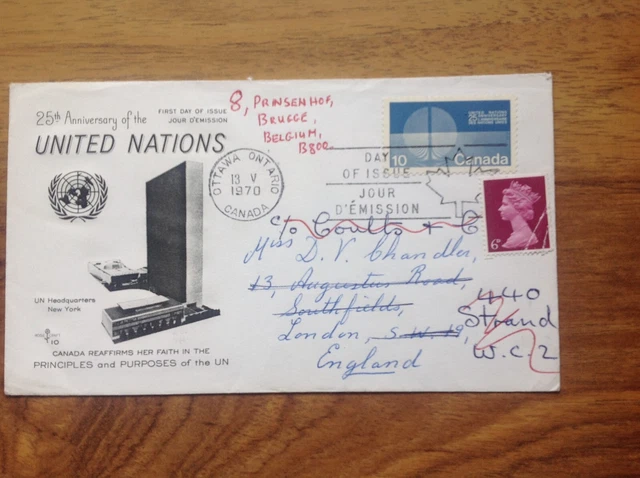 25th Anniversary of the
UNITED NATIONS
FIRST DAY OF ISSUE
JOUR D'ÉMISSION
8, PRINSENHOF,
BRUGGE,
BELGIUM,
B800
UNITED NATIONS
10 Canada
OTTAWA ONTARIO
13 V
1970
CANADA
DAY
OF ISSUE
JOUR
D'ÉMISSION
6P
c/o Coutts & C
Miss D. V. Chandler,
13, Augustus Road,
Southfields,
London, S.W. 19,
England
440
Strand
W.C.2
UN Headquarters
New York
10
CANADA REAFFIRMS HER FAITH IN THE
PRINCIPLES and PURPOSES of the UN